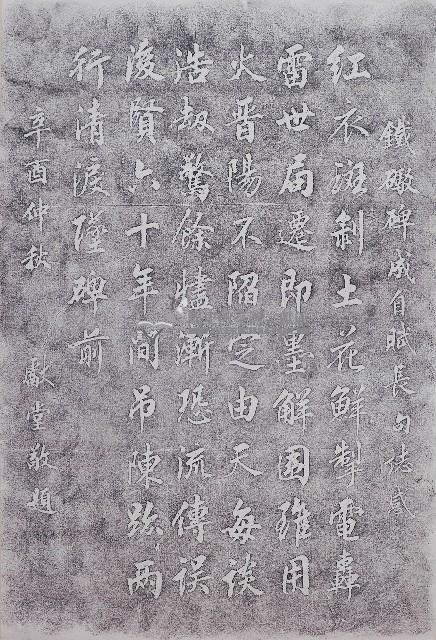 鐵礮碑成自賦長句誌感
紅衣斑剝土花鮮掣電轟
雷世局遷即墨解圍雖用
火晉陽不陷定由天每談
浩劫驚餘燼漸恐流傳誤
後賢六十年間吊陳跡兩
行清淚墮碑前
辛酉仲秋 獻堂敬題